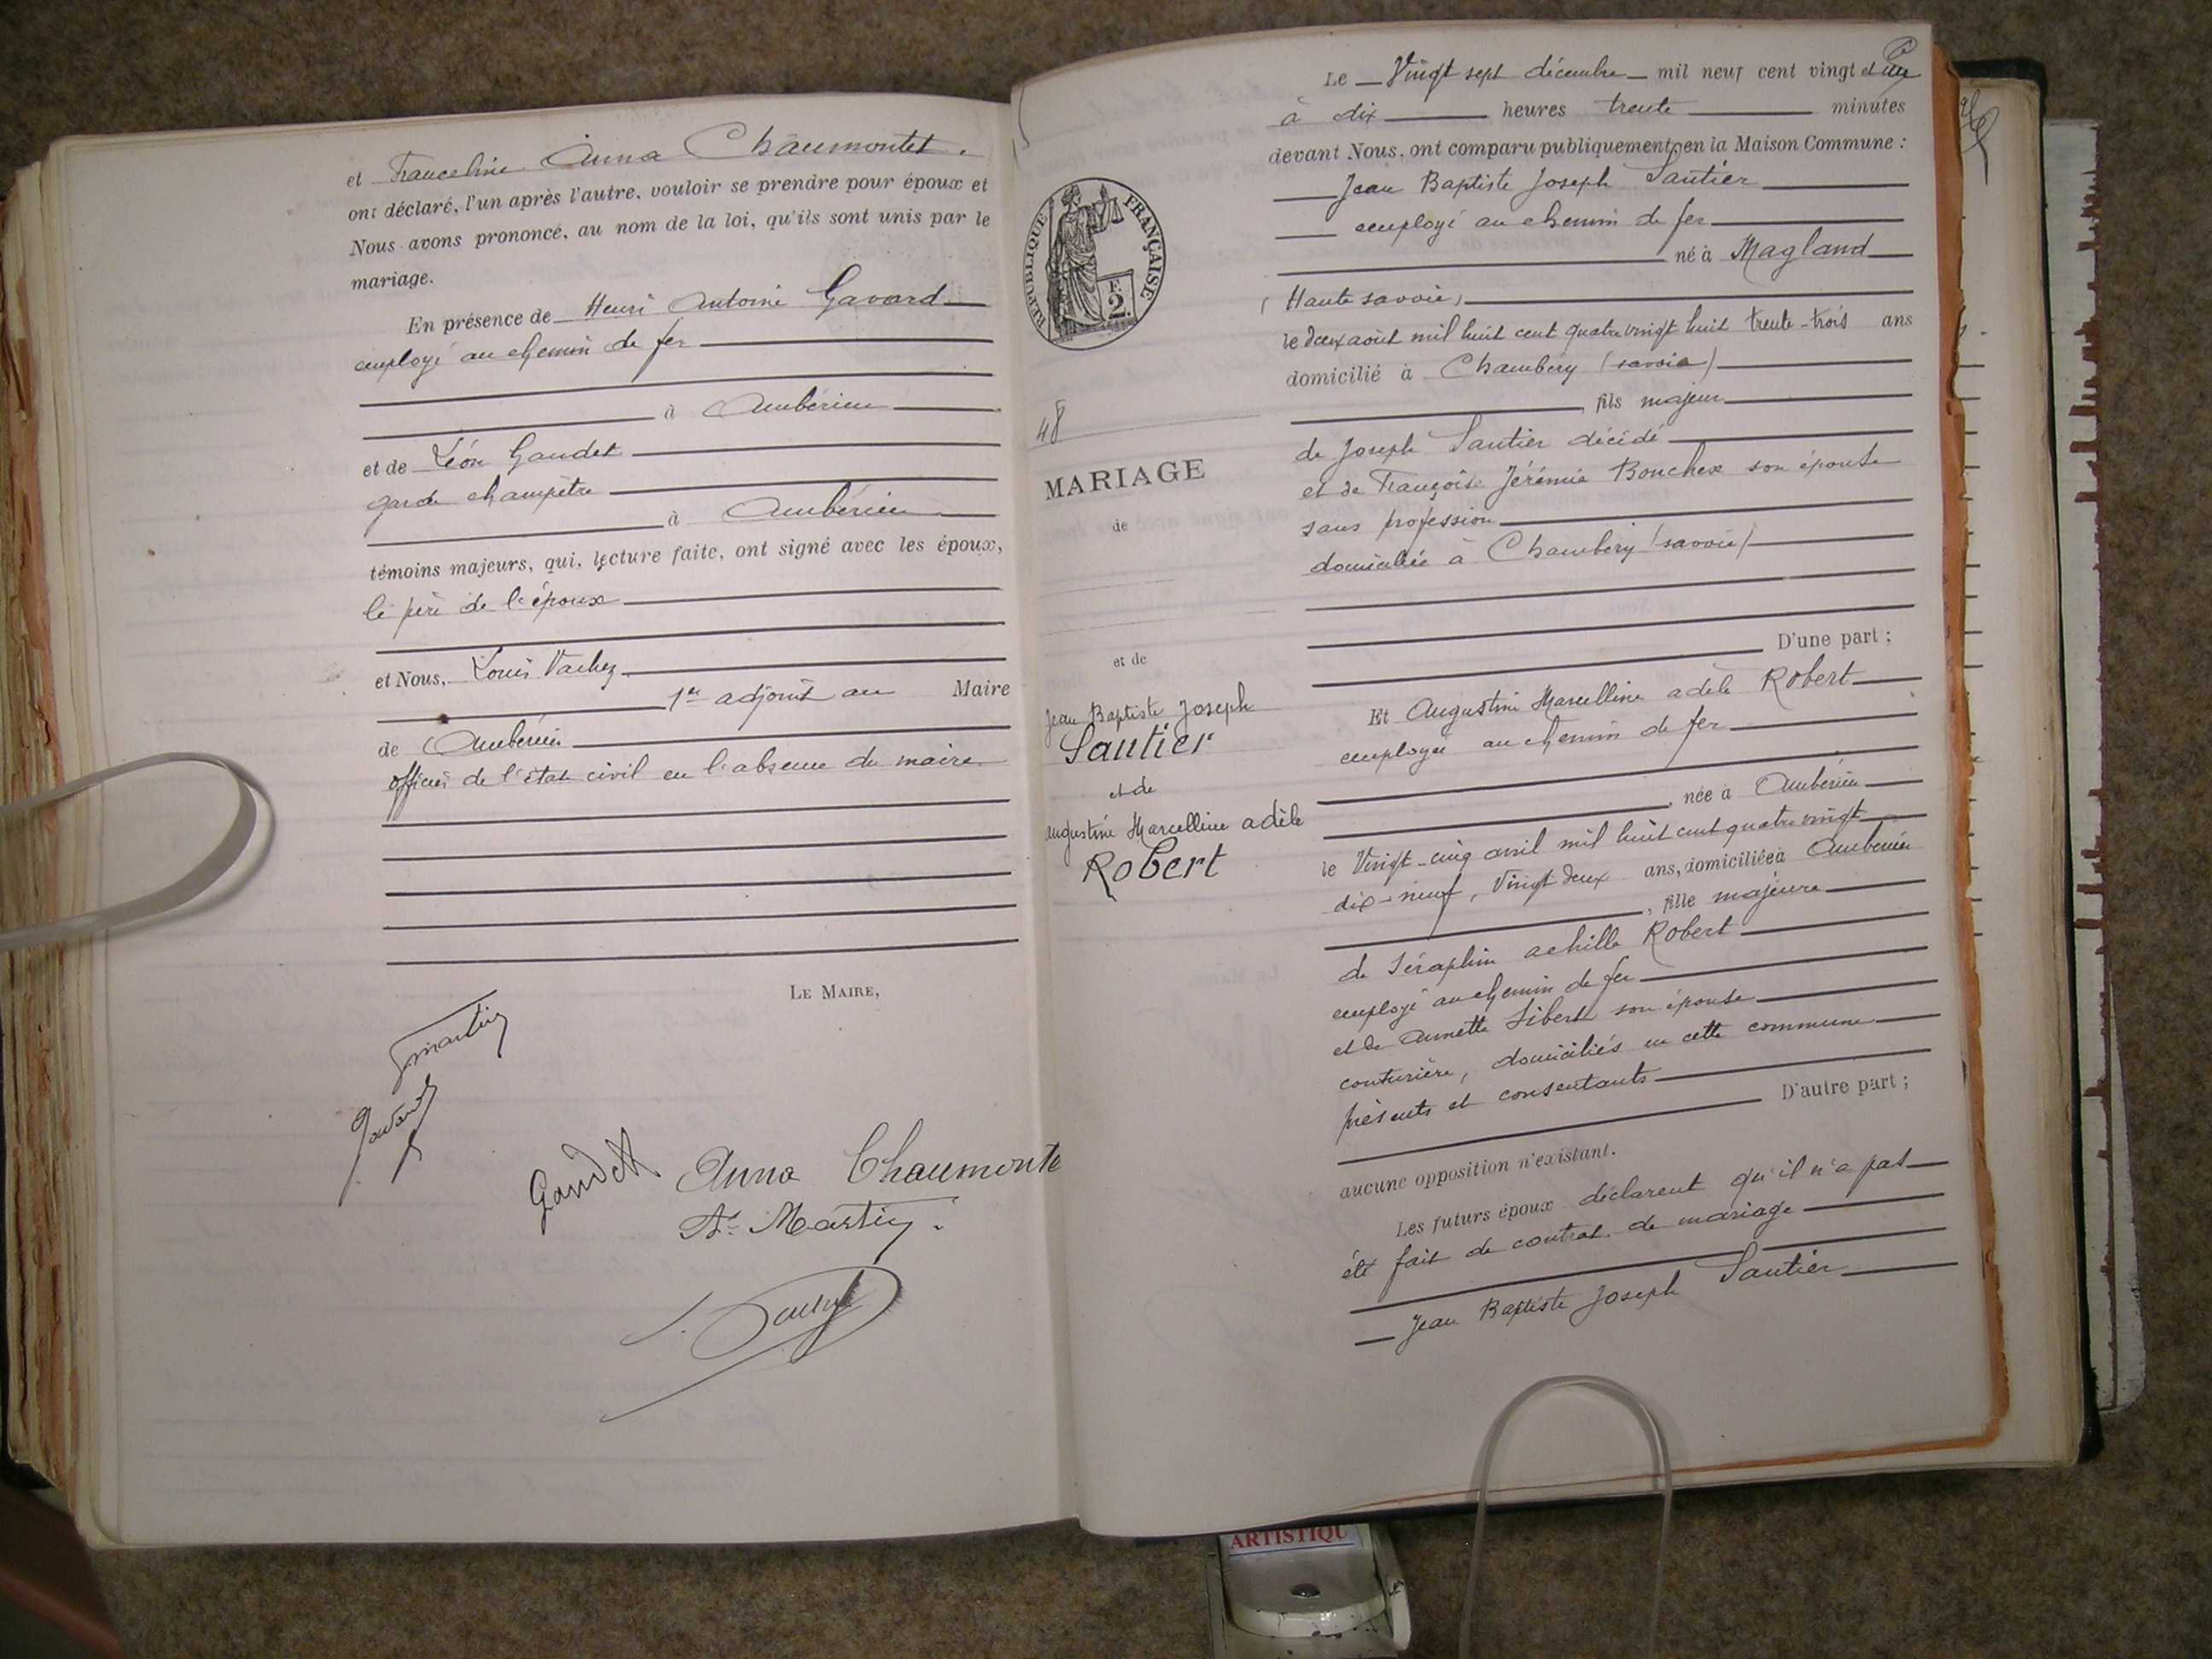 et Franceline Anna Chaumontet.
ont déclaré, l'un après l'autre, vouloir se prendre pour époux et
Nous avons prononcé, au nom de la loi, qu'ils sont unis par le
mariage.
En présence de Henri Antoine Gavard
employé au chemin de fer
à Ambérieu
et de Léon Gaudet
garde champêtre
à Ambérieu
témoins majeurs, qui, lecture faite, ont signé avec les époux,
le père de l'époux
et Nous, Louis Vachez
1er adjoint au Maire
de Ambérieu
officier de l'état civil en l'absence du maire
LE MAIRE,
martin
Gavard
Gaudet
Anna Chaumonte
At. Martin.
Le Vingt sept décembre mil neuf cent vingt et un
à dix heures trente minutes
devant Nous, ont comparu publiquement en la Maison Commune :
Jean Baptiste Joseph Sautier
employé au chemin de fer
né à Magland
(Haute savoie)
le deux août mil huit cent quatre vingt huit trente-trois ans
domicilié à Chambéry (savoie)
, fils majeur
de Joseph Sautier décédé
et de Françoise Jérémie Bouchex son épouse
sans profession
domiciliée à Chambéry (savoie)
D'une part ;
Et Augustine Marcelline adèle Robert
employée au chemin de fer
, née à Ambérieu
le Vingt-cinq avril mil huit cent quatre vingt
dix-neuf, Vingt deux ans, domiciliée à Ambérieu
, fille majeure
de Séraphin achille Robert
employé au chemin de fer
et de Annette Sibert son épouse
couturière, domiciliés en cette commune
présents et consentants
D'autre part ;
aucune opposition n'existant.
Les futurs époux déclarent qu'il n'a pas
été fait de contrat de mariage
Jean Baptiste Joseph Sautier
RÉPUBLIQUE FRANÇAISE
F.
2.
48
MARIAGE
de
et de
Jean Baptiste Joseph
Sautier
et de
augustine Marcelline adèle
Robert
ARTISTIQU